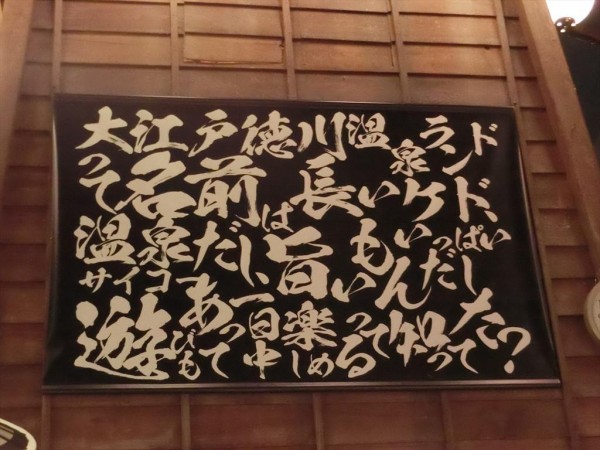 大江戸徳川温泉ランド
って名前は長いケド、
温泉サイコだし、旨いもんいっぱいだし
遊びもあって一日中楽しめるって知ってた?